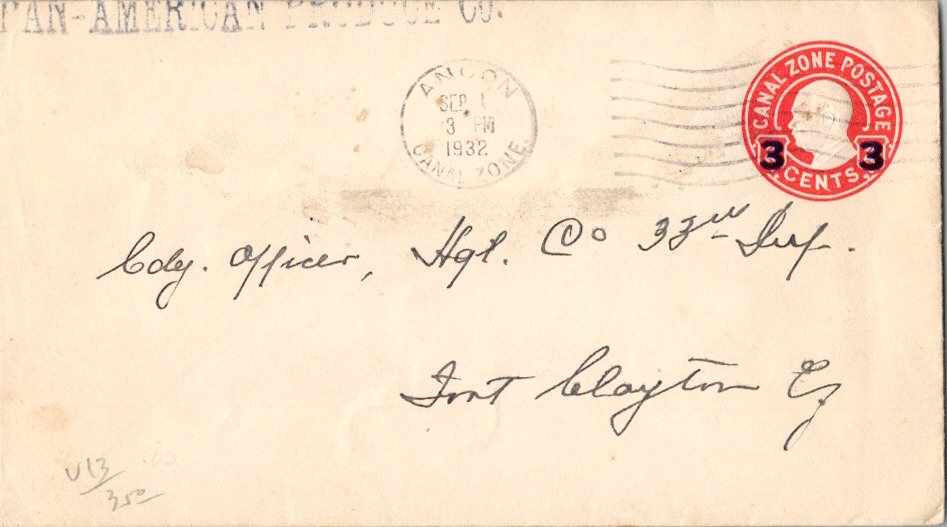 PAN-AMERICAN PRODUCE CO.
ANCON
SEP 1
3 PM
1932
CANAL ZONE
CANAL ZONE POSTAGE
3 3
CENTS
Cdg. Officer, Hqt. Co 33rd Inf.
Fort Clayton Cz
U13
350
.03